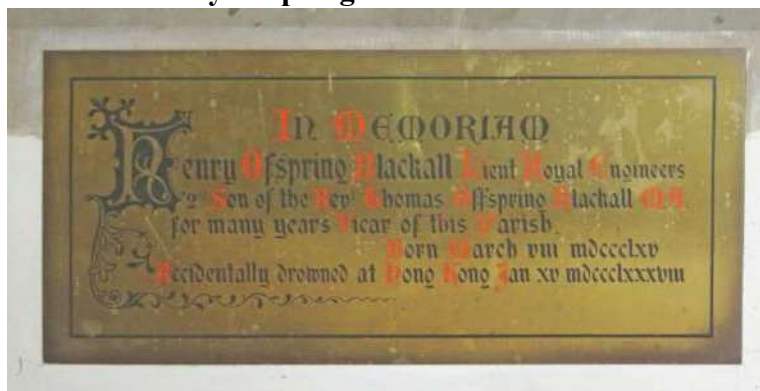 In Memoriam
Henry Offspring Blackall Lieut Royal Engineers
2nd Son of the Revd Thomas Offspring Blackall MA
for many years Vicar of this Parish.
Born March viii mdccclxv
Accidentally drowned at Hong Kong Jan xv mdccclxxxviii